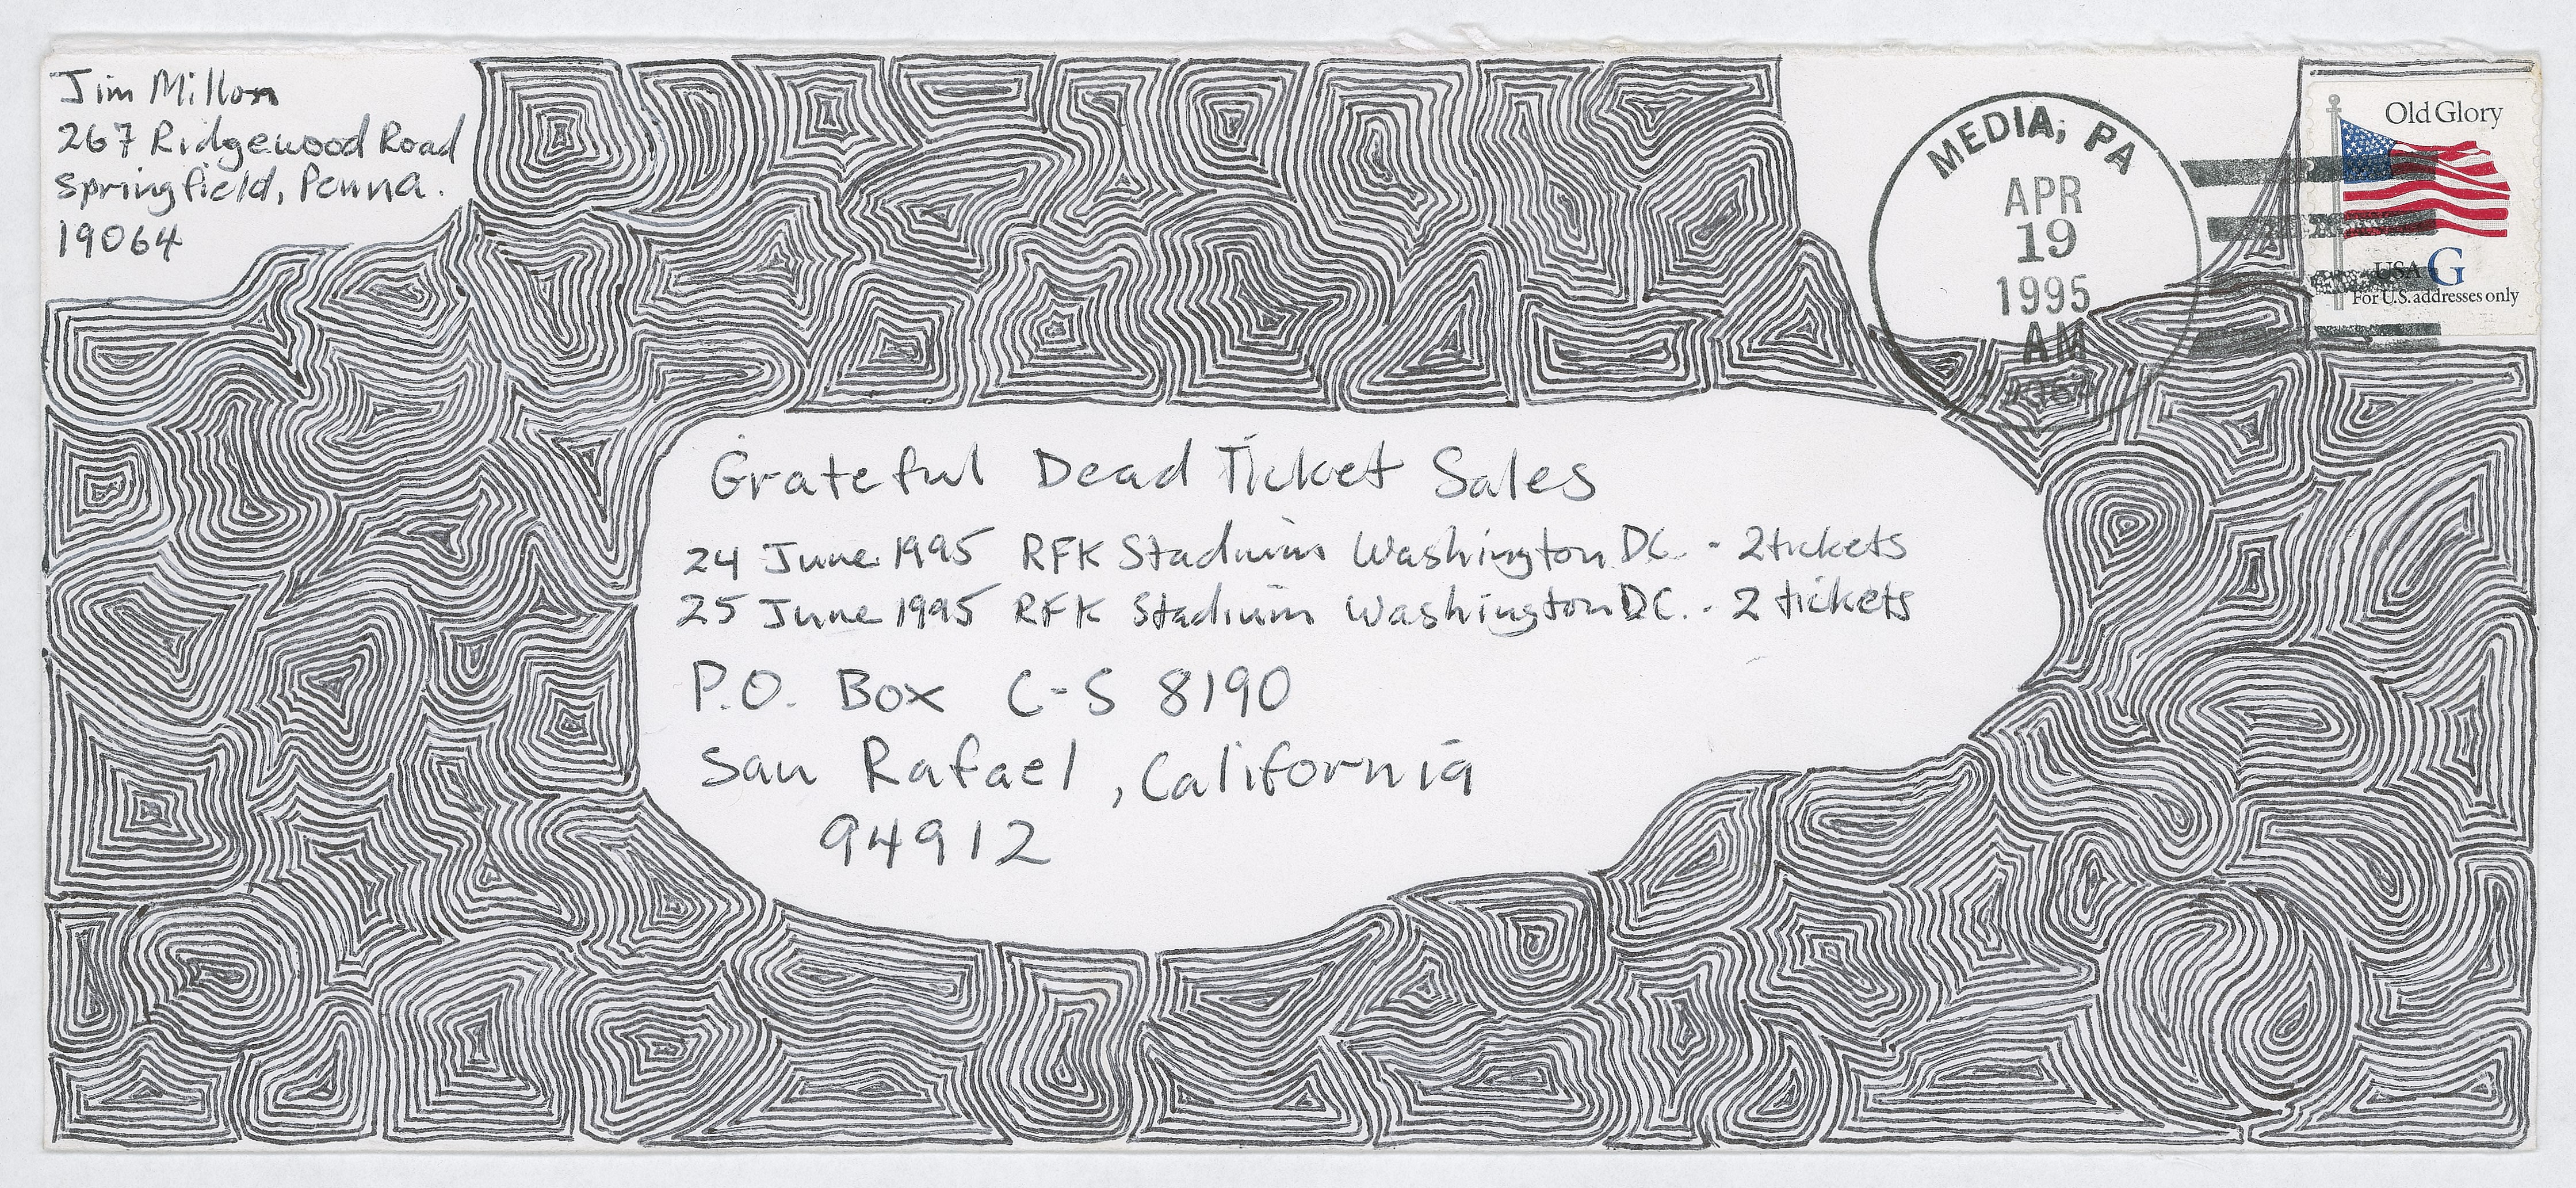 Jim Millon
267 Ridgewood Road
Springfield, Penna.
19064
MEDIA, PA
APR
19
1995
AM
Old Glory
USA G
For U.S. addresses only
Grateful Dead Ticket Sales
24 June 1995 RFK Stadium Washington DC. - 2 tickets
25 June 1995 RFK Stadium Washington DC. - 2 tickets
P.O. Box C-S 8190
San Rafael, California
94912